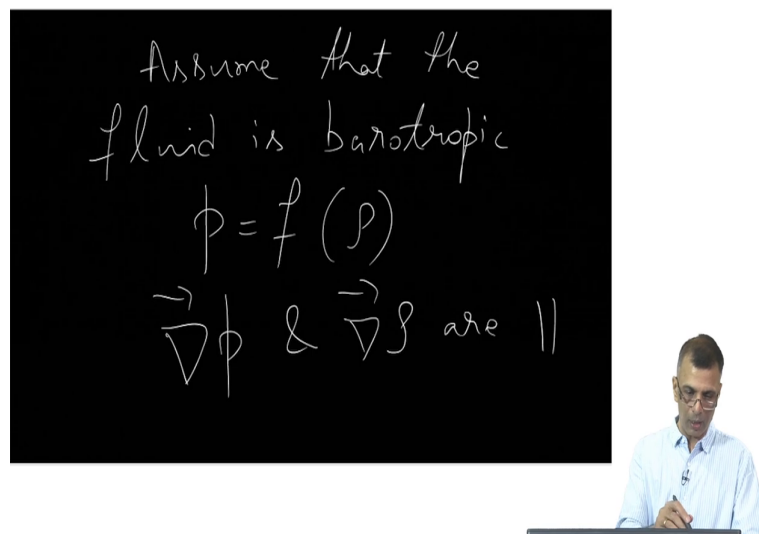 Assume that the
fluid is barotropic
p = f (ρ)
∇⃗p & ∇⃗ρ are ||